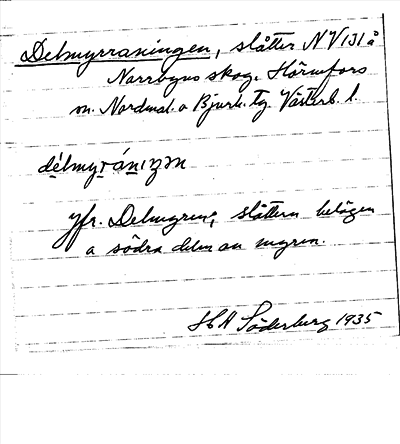 Delmyrraningen, slåtter N V 131 å
Norrbyns skog. Hörnefors
sn. Nordmal. o Bjurh. tg. Västerb. l.
délmyránizən
jfr. Delmyren, slåttern belägen
a södra delen av myren.
H A Söderberg 1935